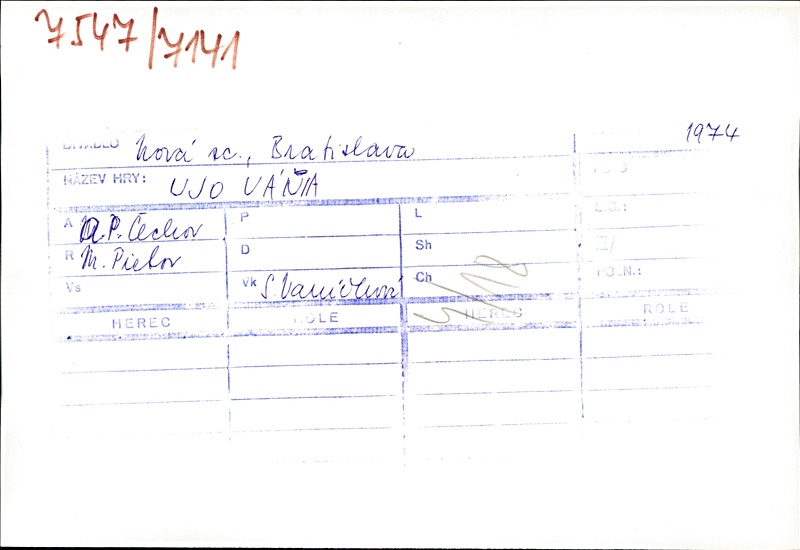 7547/7141
1974
DIVADLO Nová sc., Bratislava
NÁZEV HRY: UJO VÁŇA
A A.P. Čechov P L
R M. Pietor D Sh
Vs Vk S. Vaníčková Ch
4/18
HEREC ROLE HEREC ROLE